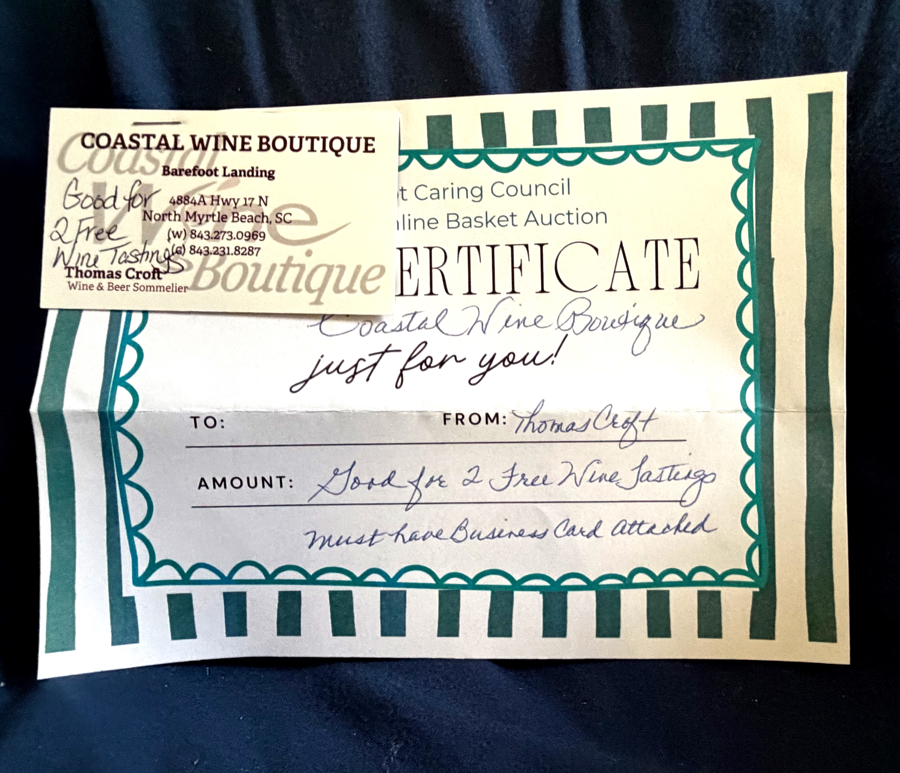 COASTAL WINE BOUTIQUE
Barefoot Landing
4884A Hwy 17 N
North Myrtle Beach, SC
(w) 843.273.0969
(c) 843.231.8287
Thomas Croft
Wine & Beer Sommelier
Good for
2 Free
Wine Tastings
Coastal
Wine
Boutique
t Caring Council
nline Basket Auction
ERTIFICATE
Coastal Wine Boutique
just for you!
TO:
FROM: Thomas Croft
AMOUNT: Good for 2 Free Wine Tastings
Must have Business Card Attached